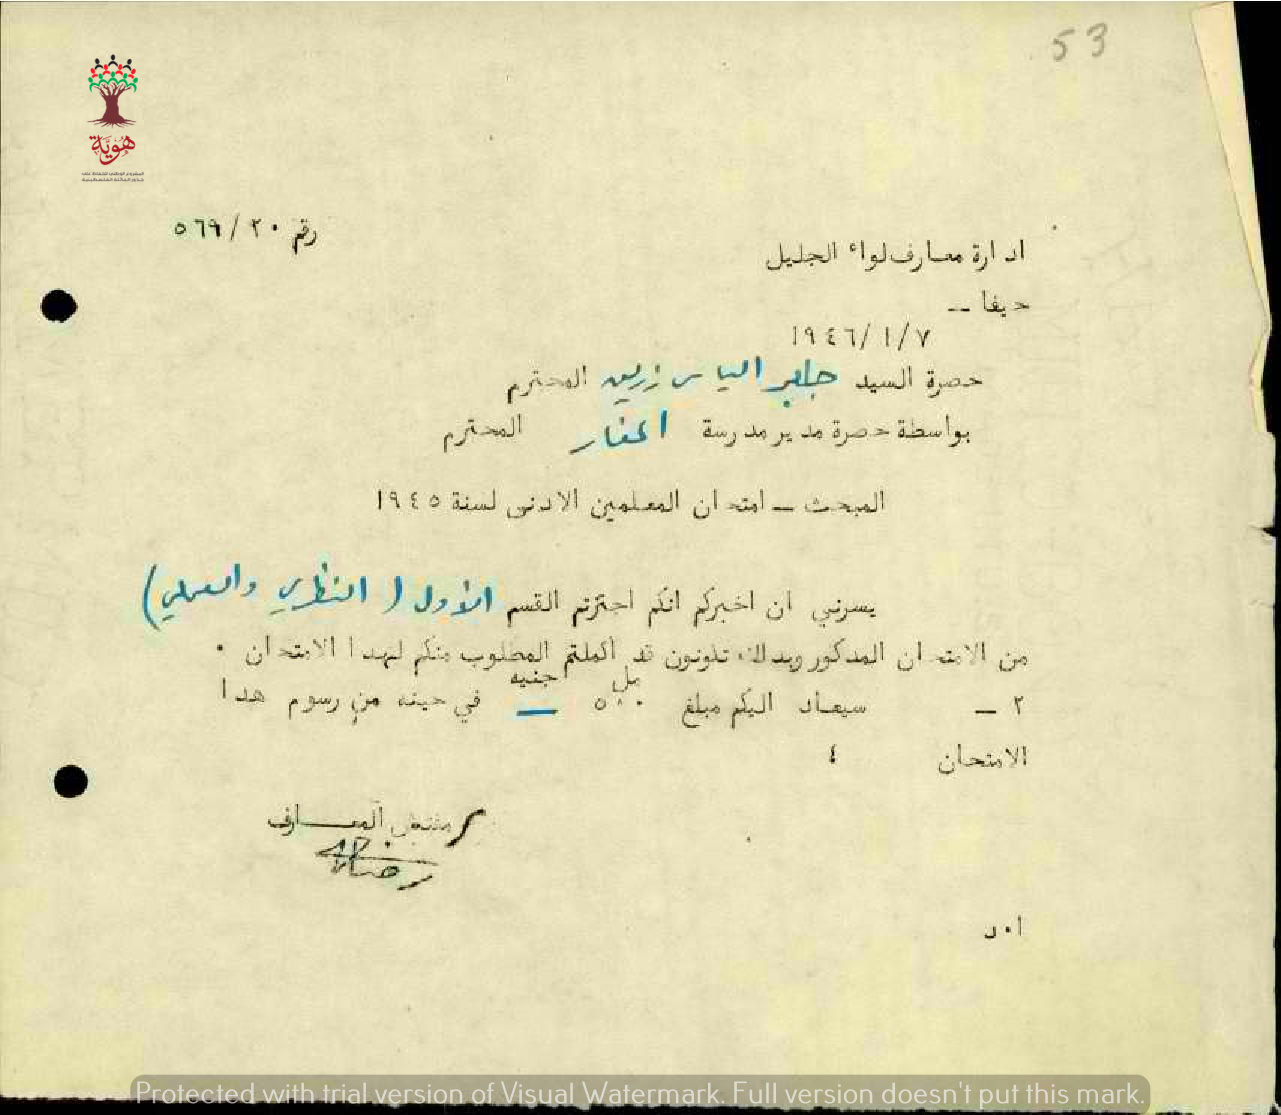 53
هوية
رقم ٢٠/٥٦٩
ادارة معارف لواء الجليل
حيفا —
١٩٤٦/١/٧
حضرة السيد جابر الياس زريق المحترم
بواسطة حضرة مدير مدرسة المغار المحترم
المبحث — امتحان المعلمين الادنى لسنة ١٩٤٥
يسرني ان اخبركم انكم اجتزتم القسم الأول ( النظري والعملي)
من الامتحان المذكور وبذلك تكونون قد اكملتم المطلوب منكم لهذا الامتحان ٠
مل جنيه
٢ — سيعاد اليكم مبلغ ٥٠٠ — في حينه من رسوم هذا
الامتحان ٤
مفتش المعارف
ا٠ر
Protected with trial version of Visual Watermark. Full version doesn't put this mark.